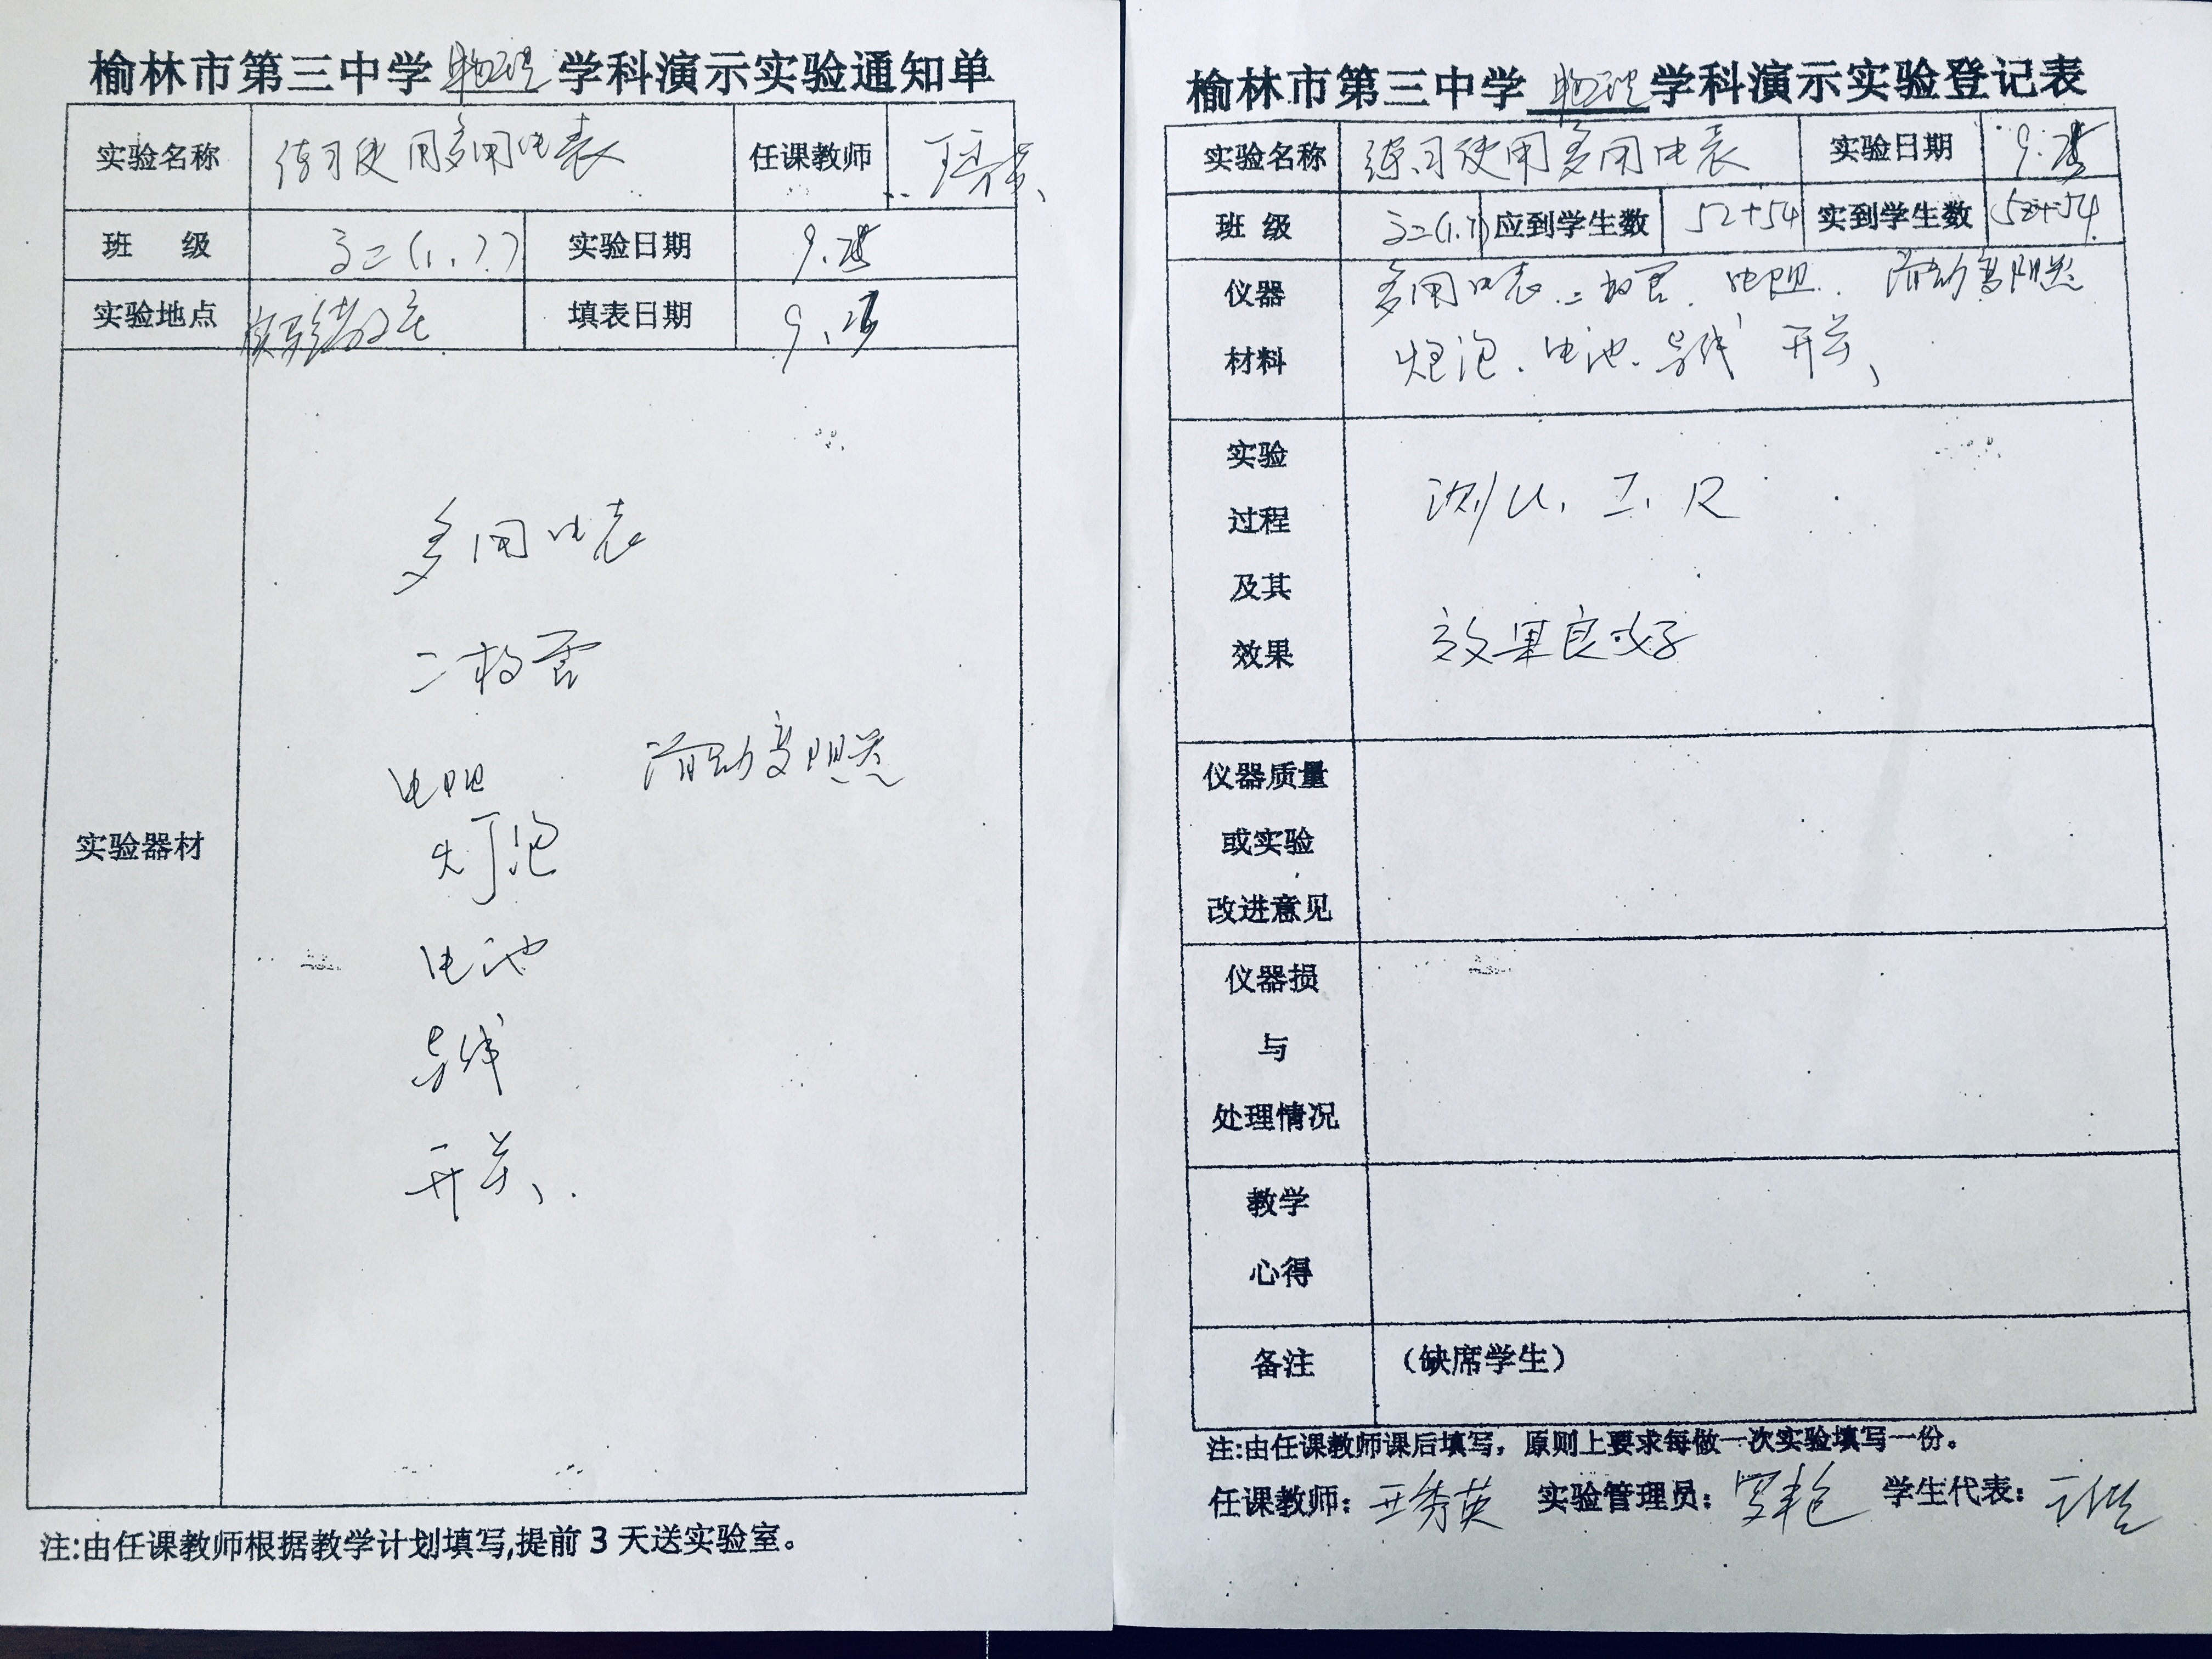 榆林市第三中学物理学科演示实验通知单
实验名称 练习使用多用电表 任课教师
班 级 高二(1.7) 实验日期 9.25
实验地点 填表日期
实验器材
多用电表
二极管
电阻 滑动变阻器
灯泡
电池
导线
开关、
注:由任课教师根据教学计划填写,提前3天送实验室。
榆林市第三中学物理学科演示实验登记表
实验名称 练习使用多用电表 实验日期 9.25
班 级 高二(1.7) 应到学生数 52+54 实到学生数 52+54
仪器材料 多用电表.二极管.电阻.滑动变阻器
灯泡.电池.导线 开关、
实验过程及其效果
测U、I、R
效果良好
仪器质量或实验改进意见
仪器损与处理情况
教学心得
备注 (缺席学生)
注:由任课教师课后填写，原则上要求每做一次实验填写一份。
任课教师: 王秀英 实验管理员: 罗艳 学生代表: